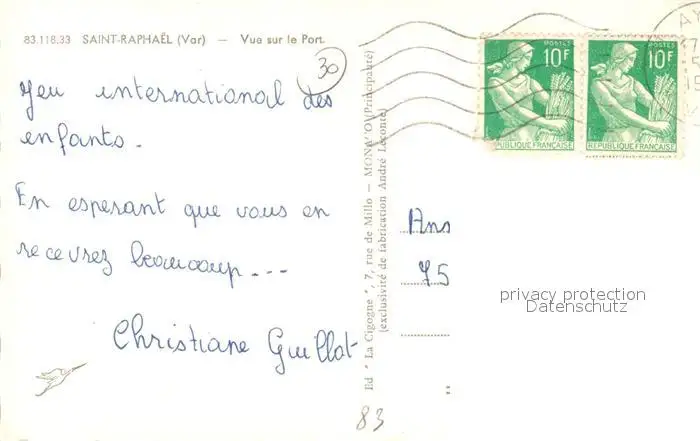 83.118.33 SAINT-RAPHAËL (Var) — Vue sur le Port.
30
Jeu international des
enfants.
En esperant que vous en
recevrez beaucoup...
Christiane Guillot
83
Ed " La Cigogne ", 7, rue de Millo — MONACO (Principauté)
(exclusivité de fabrication André Leconte)
POSTES
10F
REPUBLIQUE FRANÇAISE
POSTES
10F
REPUBLIQUE FRANÇAISE
Ans
75
privacy protection
Datenschutz